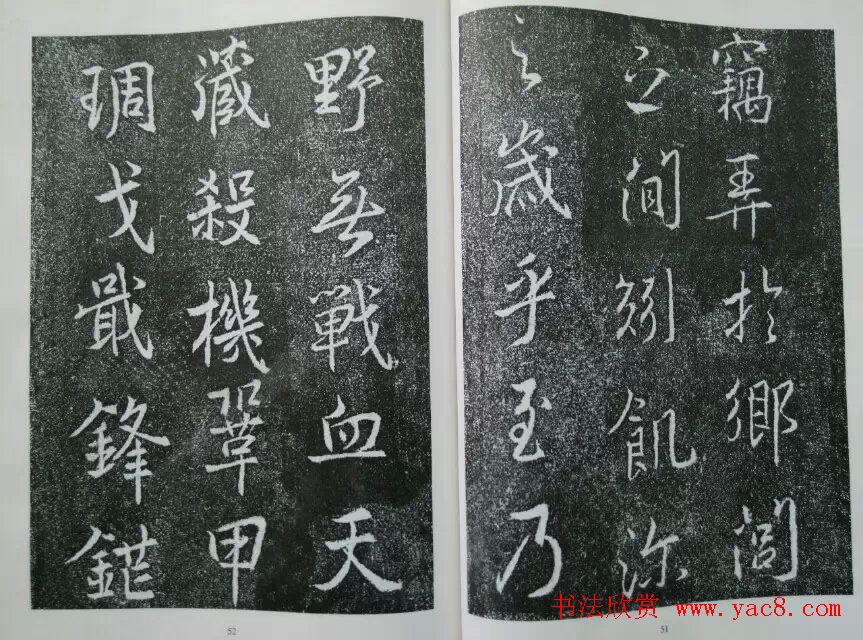 竊弄於鄉閭
之間矧飢沴
之歲乎至乃
野無戰血天
藏殺機鞏甲
琱戈戢鋒鋩
52
51
书法欣赏 www.yac8.com